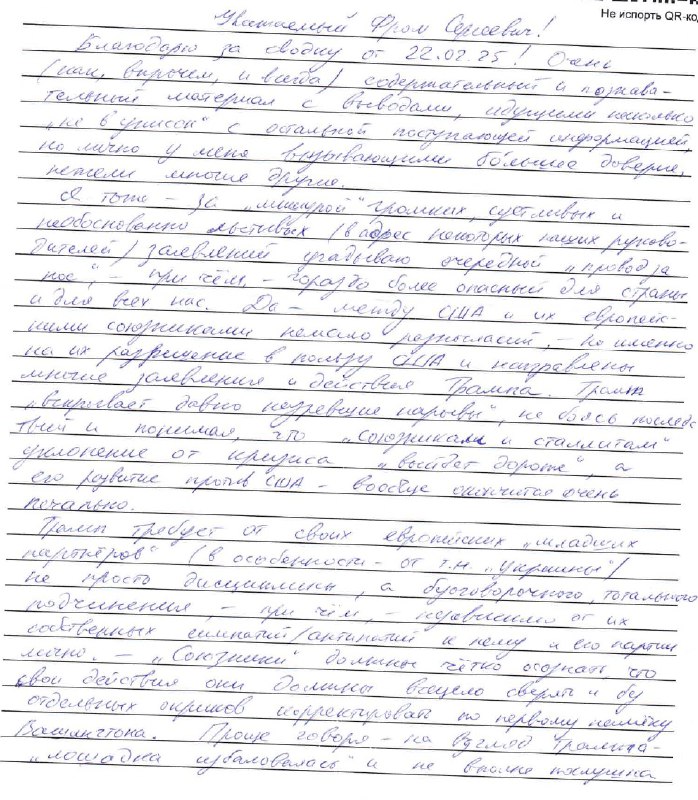 Не испорть QR-код
Уважаемый Фром Сергеевич!
Благодарю за сводку от 22.02.25! Очень
(как, впрочем, и всегда) содержательный и познава-
тельный материал с выводами, идущими несколько
„не в унисон" с остальной поступающей информацией,
но лично у меня вызывающими бо́льшее доверие,
нежели многие другие.
Я тоже – за „мишурой" громких, суетливых и
необоснованно льстивых (в адрес некоторых наших руково-
дителей) заявлений угадываю очередной „провод за
нос", – при чём, – гораздо более опасный для страны
и для всех нас. Да – между США и их европей-
скими союзниками немало разногласий, – но именно
на их разрешение в пользу США и направлены
многие заявления и действия Трампа. Трамп
„вскрывает давно назревшие нарывы", не боясь последс
твий и понимая, что „союзникам и сталлитам"
уклонение от кризиса „выйдет дороже", а
его развитие против США – вообще окончится очень
печально.
Трамп требует от своих европейских „младших
партнёров" (в особенности – от т.н. „украины")
не просто дисциплины, а безоговорочного, тотального
подчинения, – при чём, – независимо от их
собственных симпатий/антипатий к нему и его партии
лично. – „Союзники" должны чётко осознать, что
свои действия они должны всецело сверять и без
отдельных окриков корректировать по первому намёку
Вашингтона. Проще говоря – на взгляд Трампа –
„лошадка избаловалась" и не вполне послушна